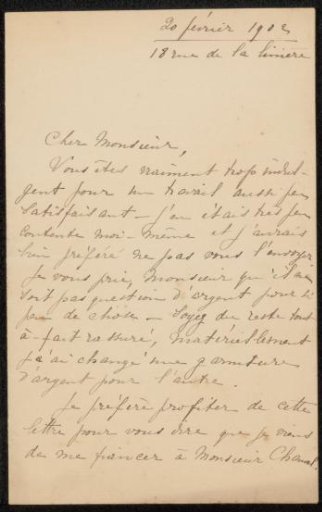 20 février 1902
18 rue de la
Cher Monsieur,
Vous êtes vraiment trop indul-
gent pour un travail aussi peu
satisfaisant – j'en étais très peu
contente moi-même et j'aurais
bien préféré ne pas vous l'envoyer
Je vous prie, Monsieur qu'il ne
soit pas question d'argent pour si
peu de chose – Soyez du reste tout
à-fait rassuré, matériellement
j'ai changé une garniture
d'argent pour l'autre.
Je préfère profiter de cette
lettre pour vous dire que je viens
de me fiancer à Monsieur